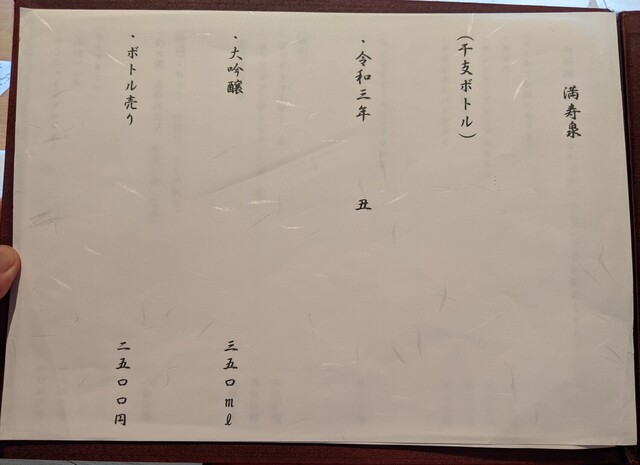 満寿泉
(干支ボトル)
・令和三年 丑
・大吟醸 三五〇ml
・ボトル売り 二五〇〇円